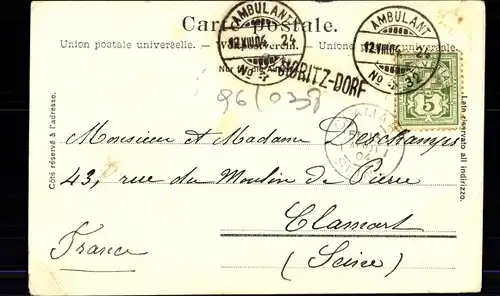 Carte postale.
Union postale universelle. — Weltpostverein. — Unione postale universale.
Nur für die Adresse.
AMBULANT
12.VIII.04. 24
No
AMBULANT
12.VIII.04. 24
No 32
ST. MORITZ-DORF
5
96/038
Côté réservé à l'adresse.
Lato riservato all indirizzo.
Monsieur et Madame Deschamps
43, rue du Moulin de Pierre
Clamart
(Seine)
France